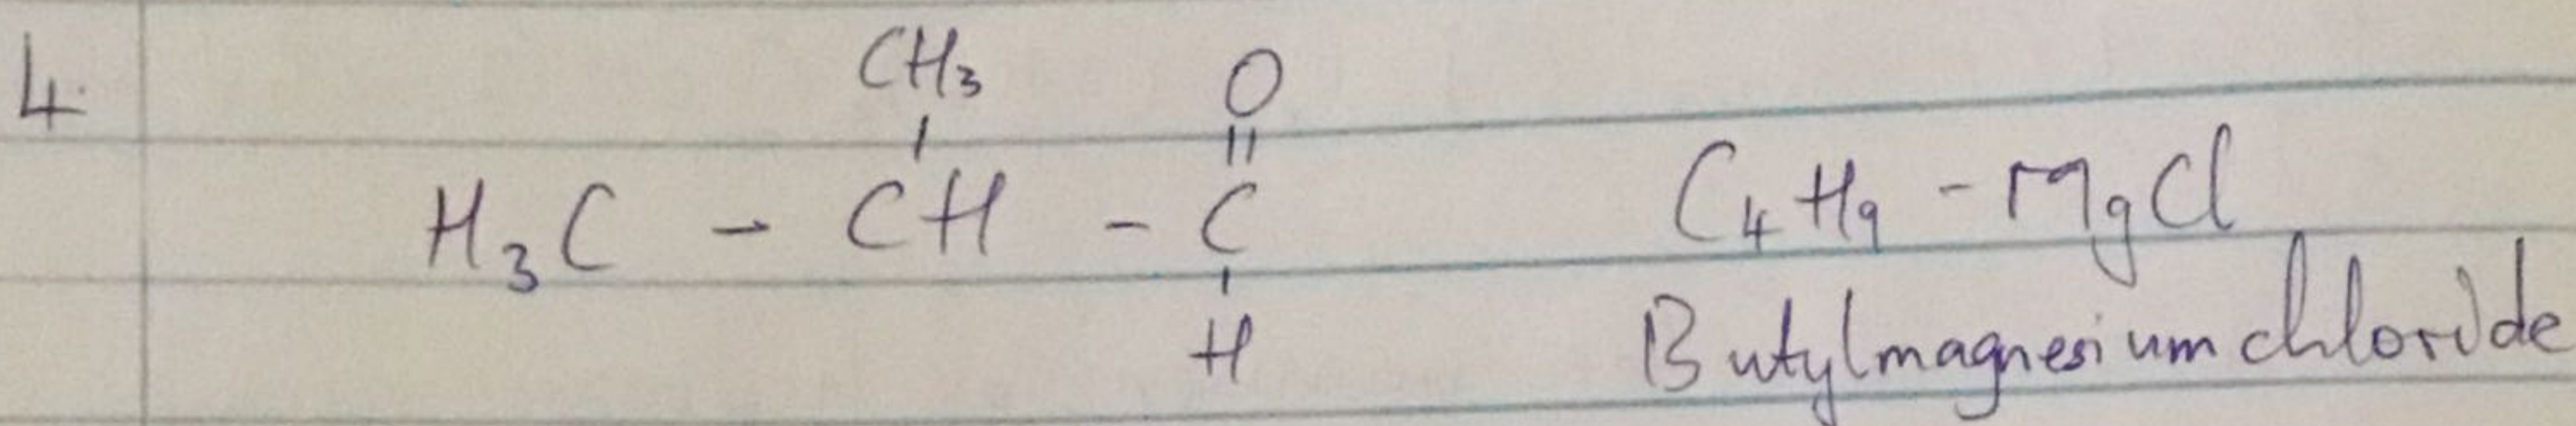 4.
CH₃ O
H₃C - CH - C C₄H₉ - MgCl
H Butylmagnesium chloride